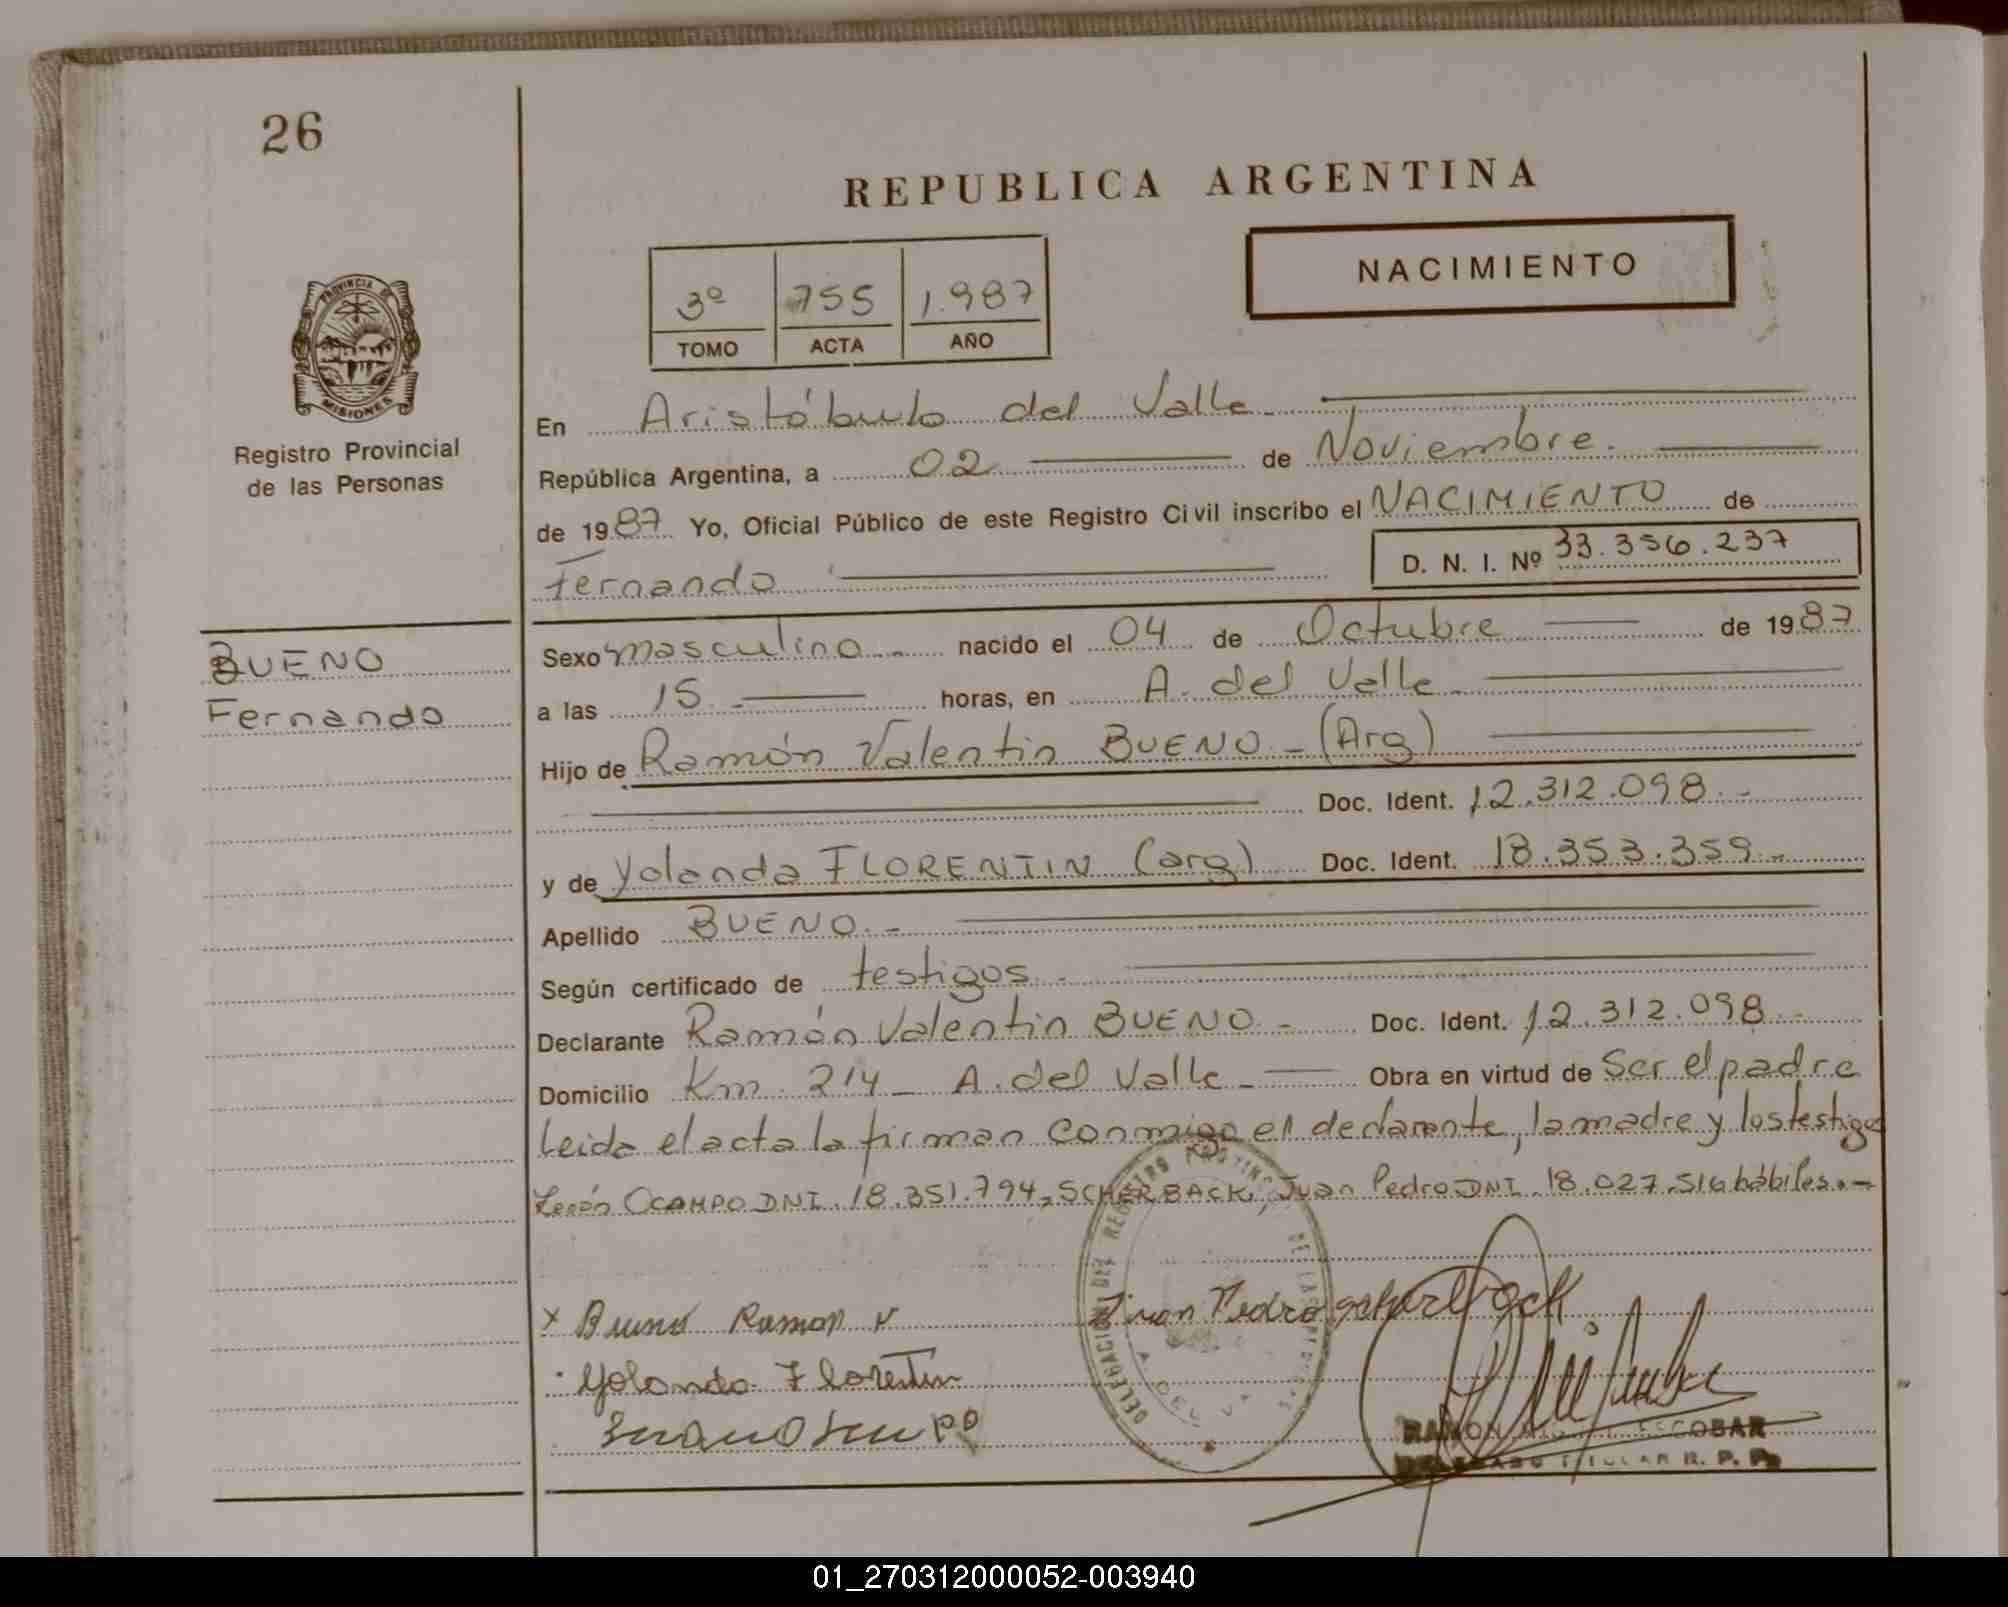 26
REPUBLICA ARGENTINA
NACIMIENTO
3º 755 1.987
TOMO ACTA AÑO
PROVINCIA DE
MISIONES
Registro Provincial
de las Personas
En Aristóbulo del Valle.
República Argentina, a 02 de Noviembre.
de 1987 Yo, Oficial Público de este Registro Civil inscribo el NACIMIENTO de
Fernando D. N. I. Nº 33.356.237
BUENO
Fernando
Sexo masculino.- nacido el 04 de Octubre de 1987
a las 15 horas, en A. del Valle
Hijo de Ramón Valentin BUENO.- (Arg)
Doc. Ident. 12.312.098.-
y de Yolanda FLORENTIN (arg) Doc. Ident. 18.353.359.-
Apellido BUENO.-
Según certificado de testigos.-
Declarante Ramón Valentin BUENO.- Doc. Ident. 12.312.098.-
Domicilio Km. 214 - A. del Valle.- Obra en virtud de Ser el padre
Leida el acta la firman conmigo el declarante, la madre y los testigos
OCAMPO DNI. 18.351.794, SCHERBACK, Juan Pedro DNI. 18.027.516 hábiles.-
DELEGACION DEL REGISTRO PROVINCIAL DE LAS PERSONAS
A. DEL VA
x Bueno Ramon V
Juan Pedro scherback
Yolanda Florentin
RAMON ESCOBAR
DELEGADO TITULAR R. P. P.
01_270312000052-003940